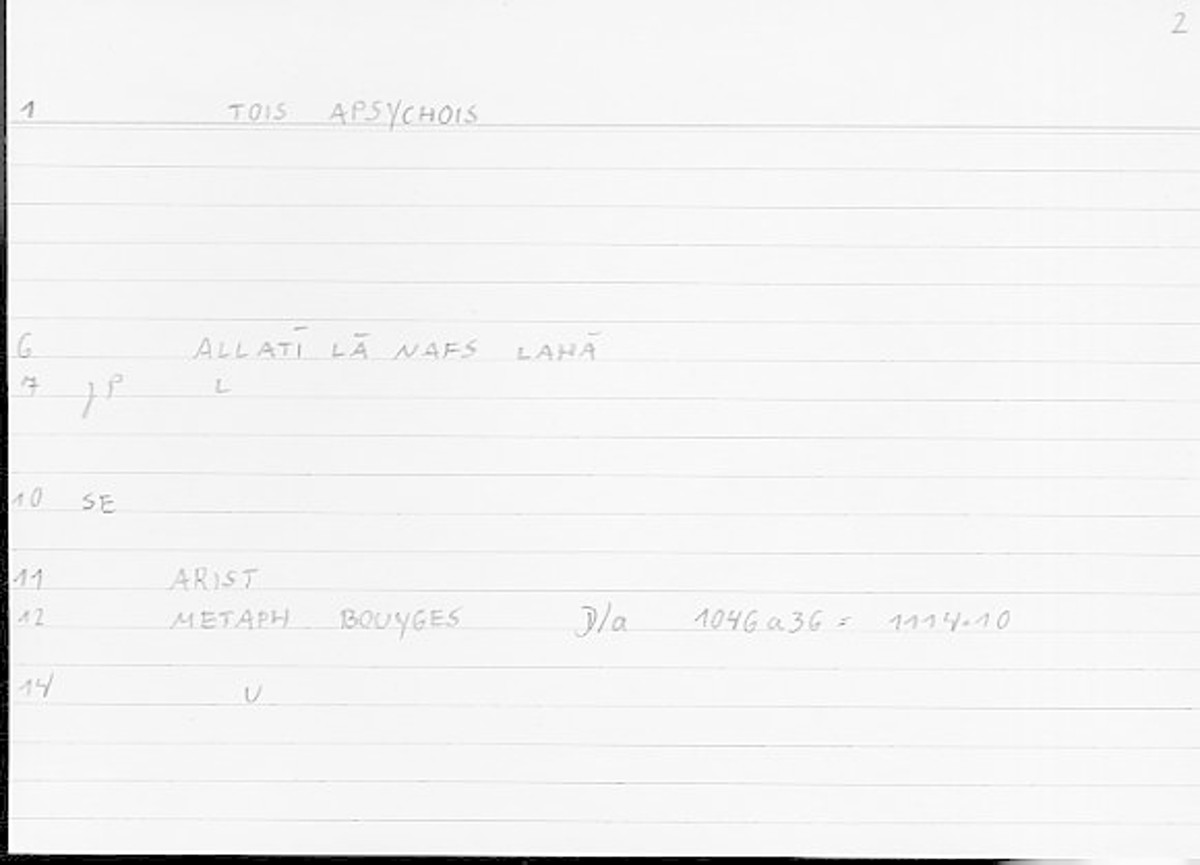 2
1 TOIS APSYCHOIS
6 ALLATĪ LĀ NAFS LAHĀ
7 jP L
10 SE
11 ARIST
12 METAPH BOUYGES D/a 1046a36 = 1114.10
14 U